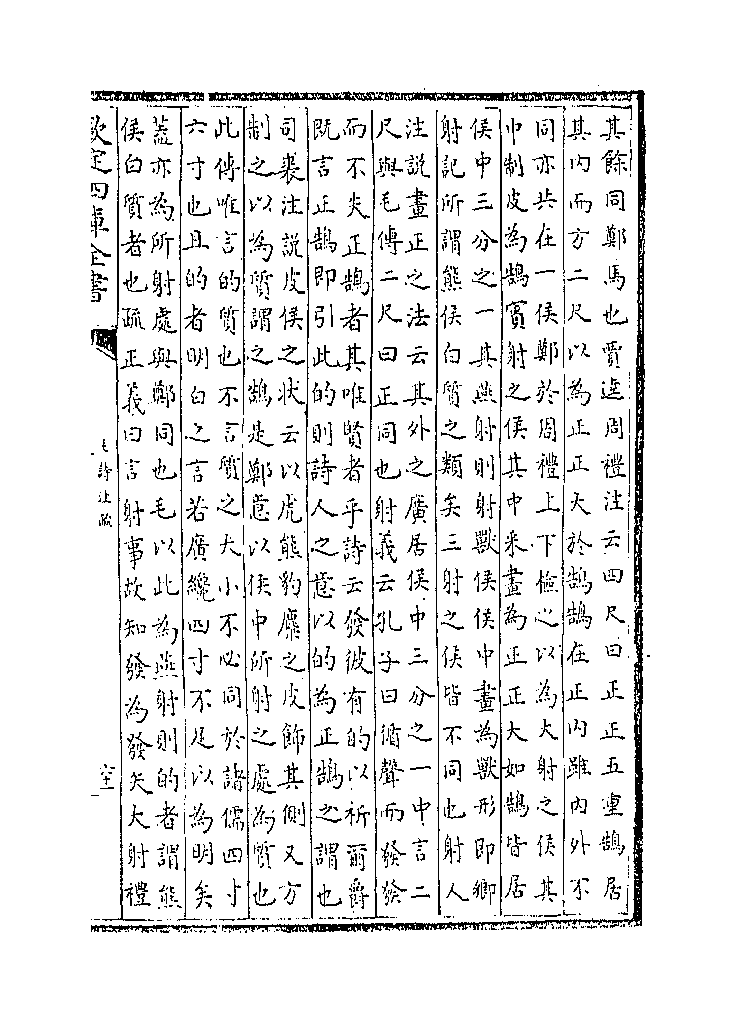 其餘同鄭馬也賈逵周禮注云四尺曰正正五重鵠居
其内而方二尺以為正正大於鵠鵠在正内雖内外不
同亦共在一侯鄭於周禮上下檢之以為大射之侯其
中制皮為鵠賓射之侯其中采畫為正正大如鵠皆居
侯中三分之一其燕射則射獸侯侯中畫為獸形即鄉
射記所謂熊侯白質之類矣三射之侯皆不同也射人
注說畫正之法云其外之廣居侯中三分之一中言二
尺與毛傳二尺曰正同也射義云孔子曰循聲而發發
而不失正鵠者其唯賢者乎詩云發彼有的以祈爾爵
既言正鵠即引此的則詩人之意以的為正鵠之謂也
司裘注說皮侯之狀云以虎熊豹麋之皮飾其側又方
制之以為質謂之鵠是鄭意以侯中所射之處為質也
此傳唯言的質也不言質之大小不必同於諸儒四寸
六寸也且的者明白之言若廣纔四寸不足以為明矣
蓋亦為所射處與鄭同也毛以此為燕射則的者謂熊
侯白質者也疏正義曰言射事故知發為發矢大射禮
欽定四庫全書
毛詩注疏